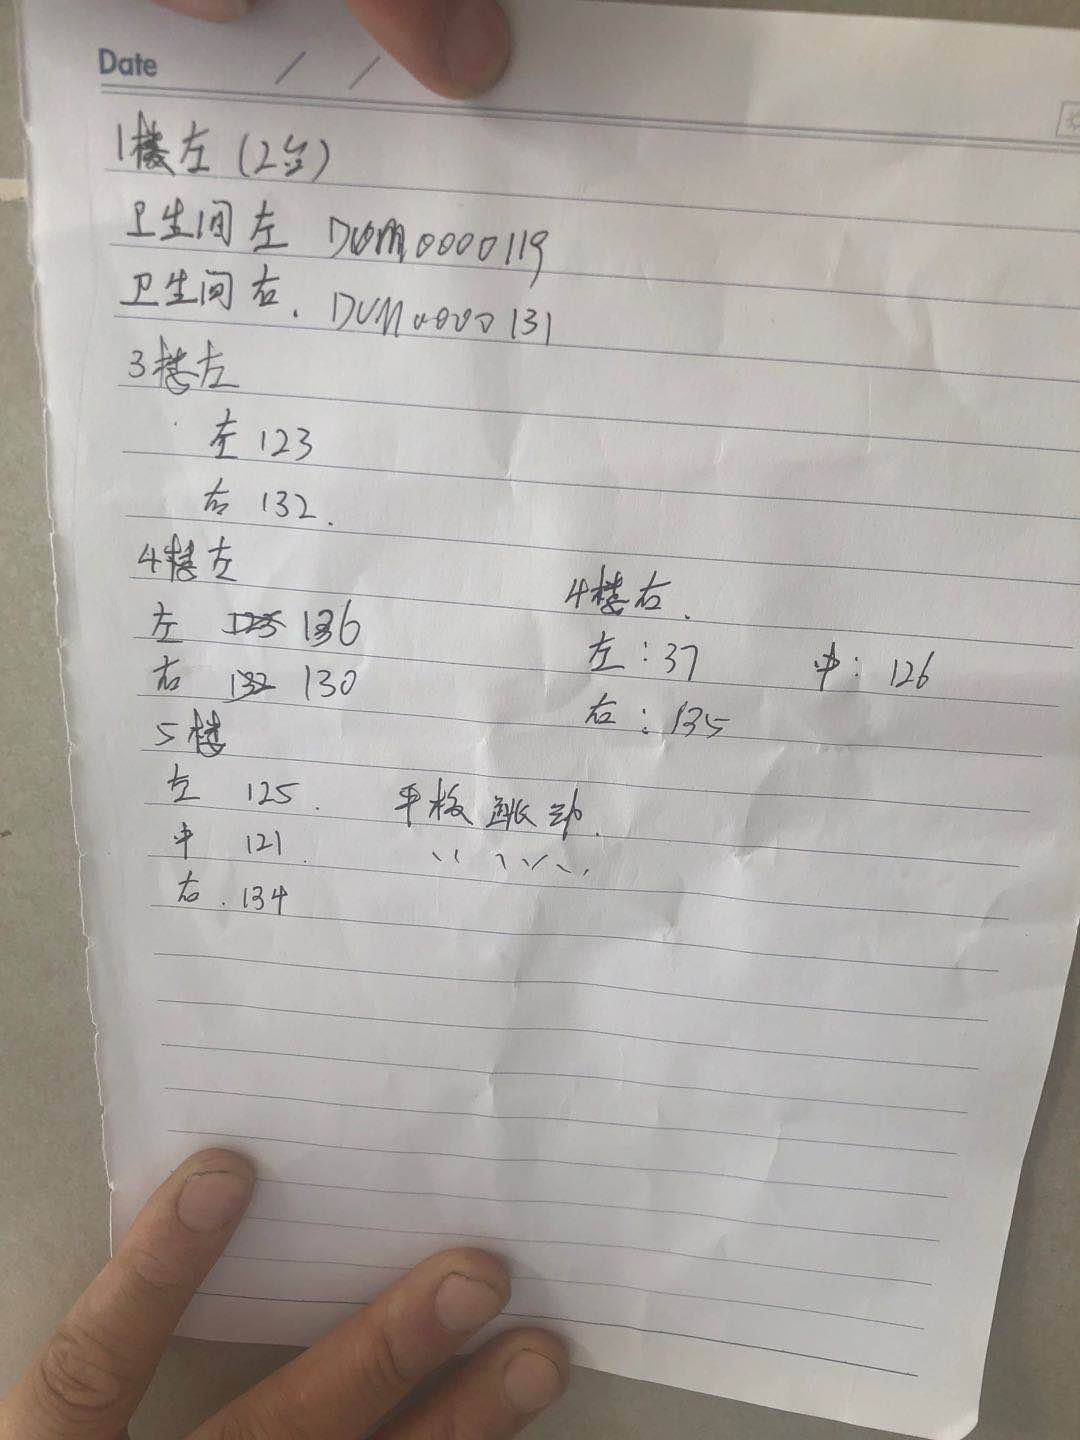 Date / /
1楼左(2台)
卫生间左 DUM0000119
卫生间右. DUM0000131
3楼左
左 123
右 132.
4楼左
左 125 136
右 132 130
4楼右.
左:37 中:126
右:135
5楼
左 125. 平板跳动.
中 121.
右. 134